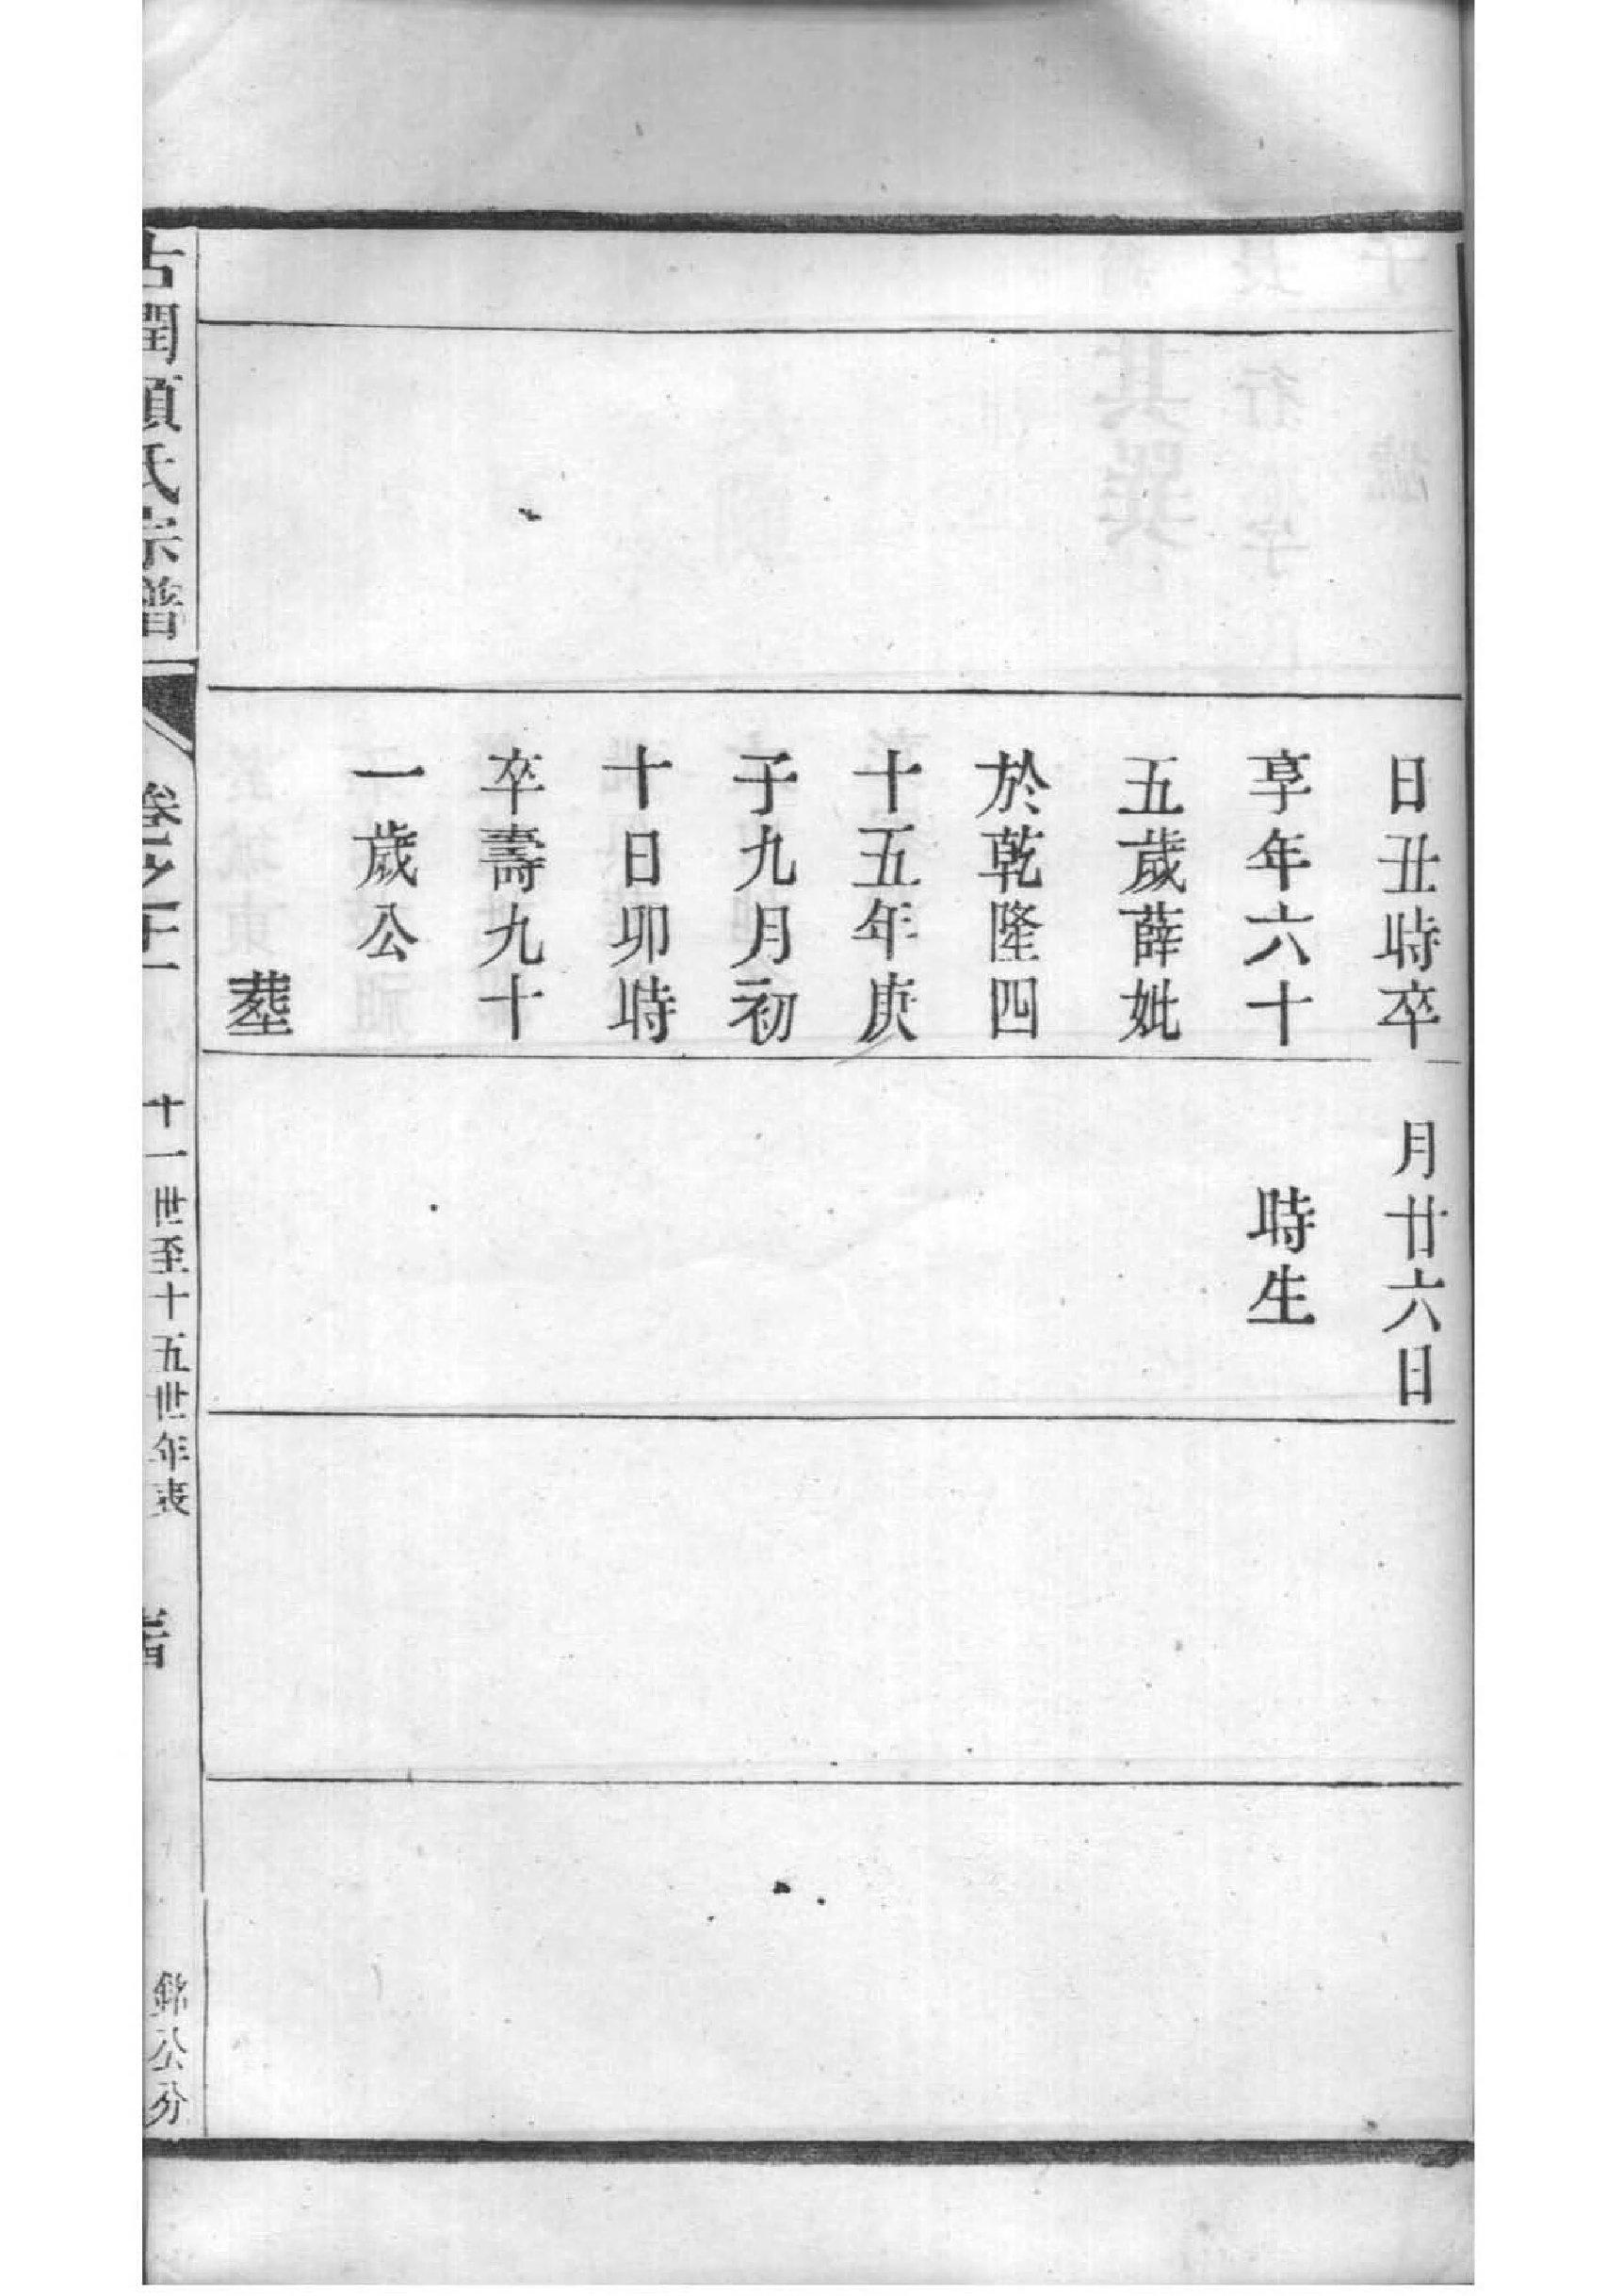 日丑時卒
享年六十
五歲薛妣
於乾隆四
十五年庚
子九月初
十日卯時
卒壽九十
一歲公
葬
月廿六日
時生
古潤項氏宗譜
卷之十一
十一世至十五世年表
錦公分